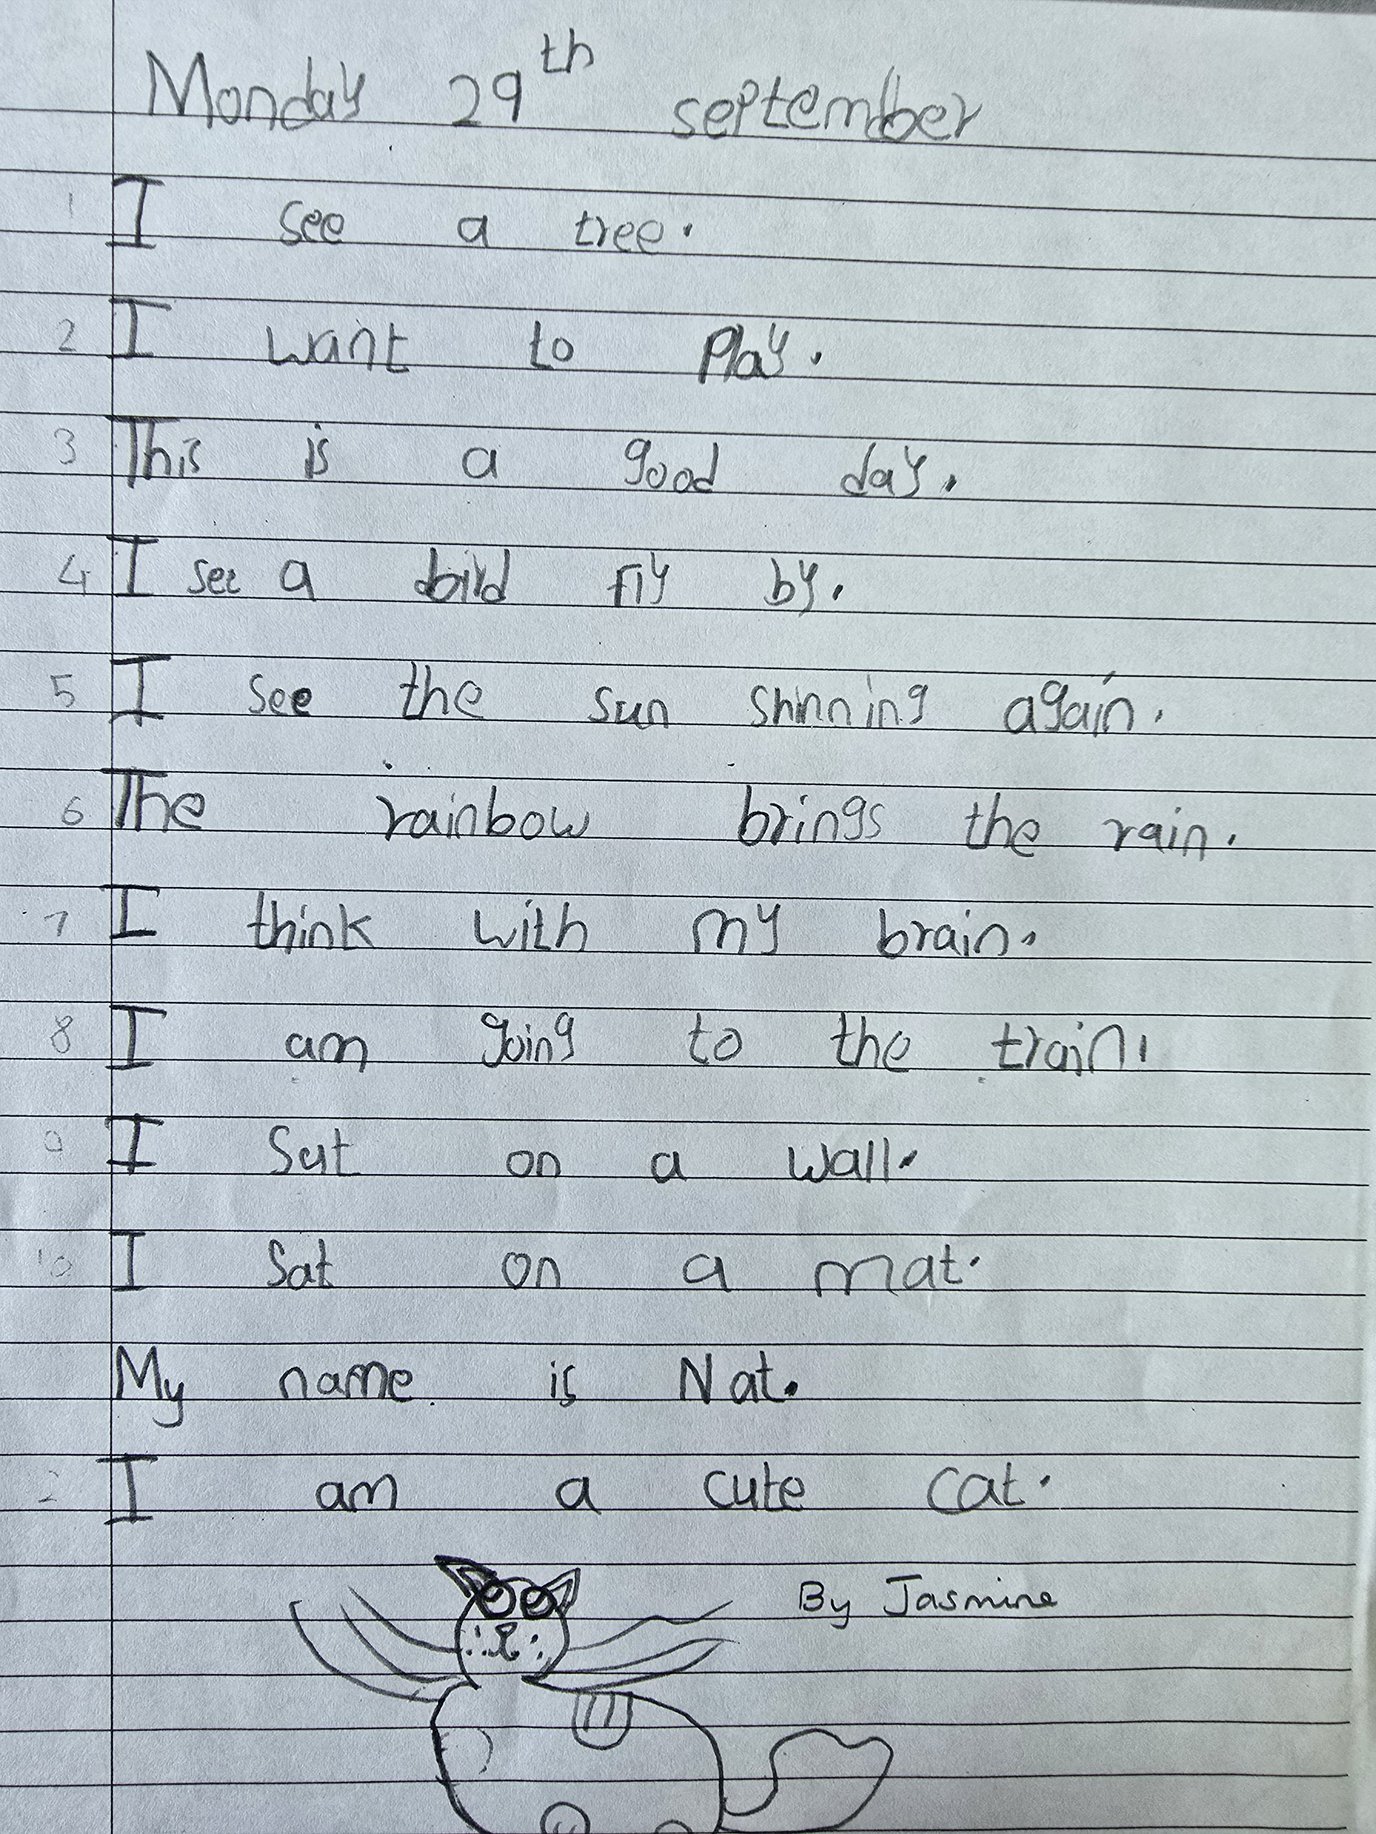 Monday 29th september
1 I see a tree.
2 I want to Play.
3 This is a good day.
4 I see a bird fly by.
5 I see the sun shinning again.
6 The rainbow brings the rain.
7 I think with my brain.
8 I am going to the train.
9 I Sat on a wall.
10 I Sat on a mat.
My name is Nat.
2 I am a cute cat.
By Jasmine